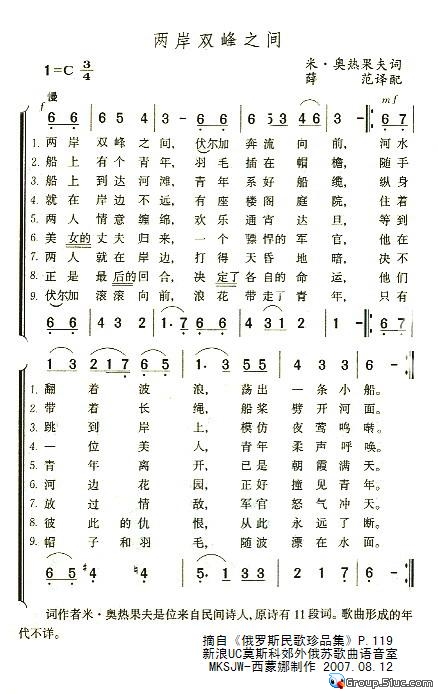 两岸双峰之间
1=C 3/4
米·奥热果夫词
薛 范译配
慢
f
mf
6 6 6 5 4 3 - 6 6 6 53 4 6 3 - 6 7
1. 两岸 双峰之间, 伏尔加 奔流向前, 河水
2. 船上 有个青年, 羽毛 插在帽檐, 随手
3. 船上 到达河滩, 青年 系好船缆, 纵身
4. 就在 岸边不远, 有座 楼阁庭院, 住着
5. 两人 情意缠绵, 欢乐 通宵达旦, 等到
6. 美 女的丈夫归来, 一个 骠悍的军官, 他在
7. 两人 就在岸边, 打得 天昏地暗, 决不
8. 正是 最后的回合, 决 定了各自的命运, 他们
9. 伏尔加 滚滚向前, 浪花 带走了青年, 只有
6 6 4 3 2 1·7 6 6 4 3 2 1 - 6 7
1 3 2 17 6 - 1· 3 5 5 4 2 3 6 -
1. 翻着波浪, 荡出一条小船。
2. 带着长绳, 船桨劈开河面。
3. 跳到岸上, 模仿夜莺鸣啭。
4. 一位美人, 青年柔声呼唤。
5. 青年离开, 已是朝霞满天。
6. 河边花园, 正好撞见青年。
7. 放过情敌, 军官怒气冲天。
8. 彼此的仇恨, 从此永远了断。
9. 帽子和羽毛, 随波漂在水面。
词作者米·奥热果夫是位来自民间诗人,原诗有11段词。歌曲形成的年
代不详。
摘自《俄罗斯民歌珍品集》P.119
新浪UC莫斯科郊外俄苏歌曲语音室
MKSJW-西蒙娜制作 2007.08.12
Group.5iuc.com